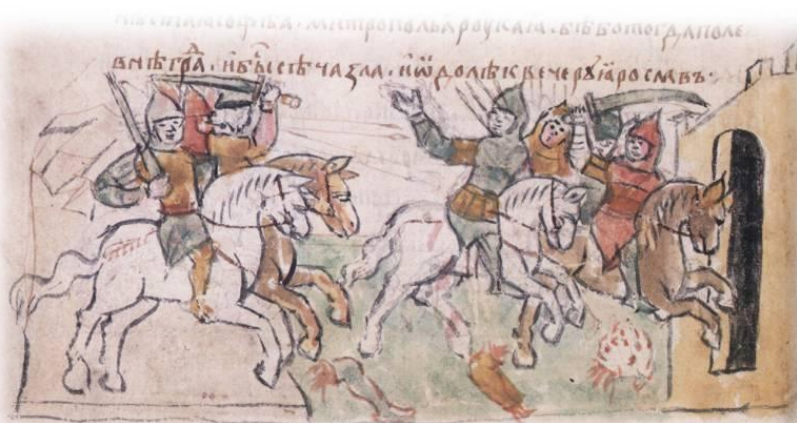 софьꙗ . митропольꙗ роускаꙗ . бѣ бо тогда поле
внѣ граⷣ · и быⷭ сѣча зла · и ѡдолѣ к вечерꙋ ꙗрославъ ·